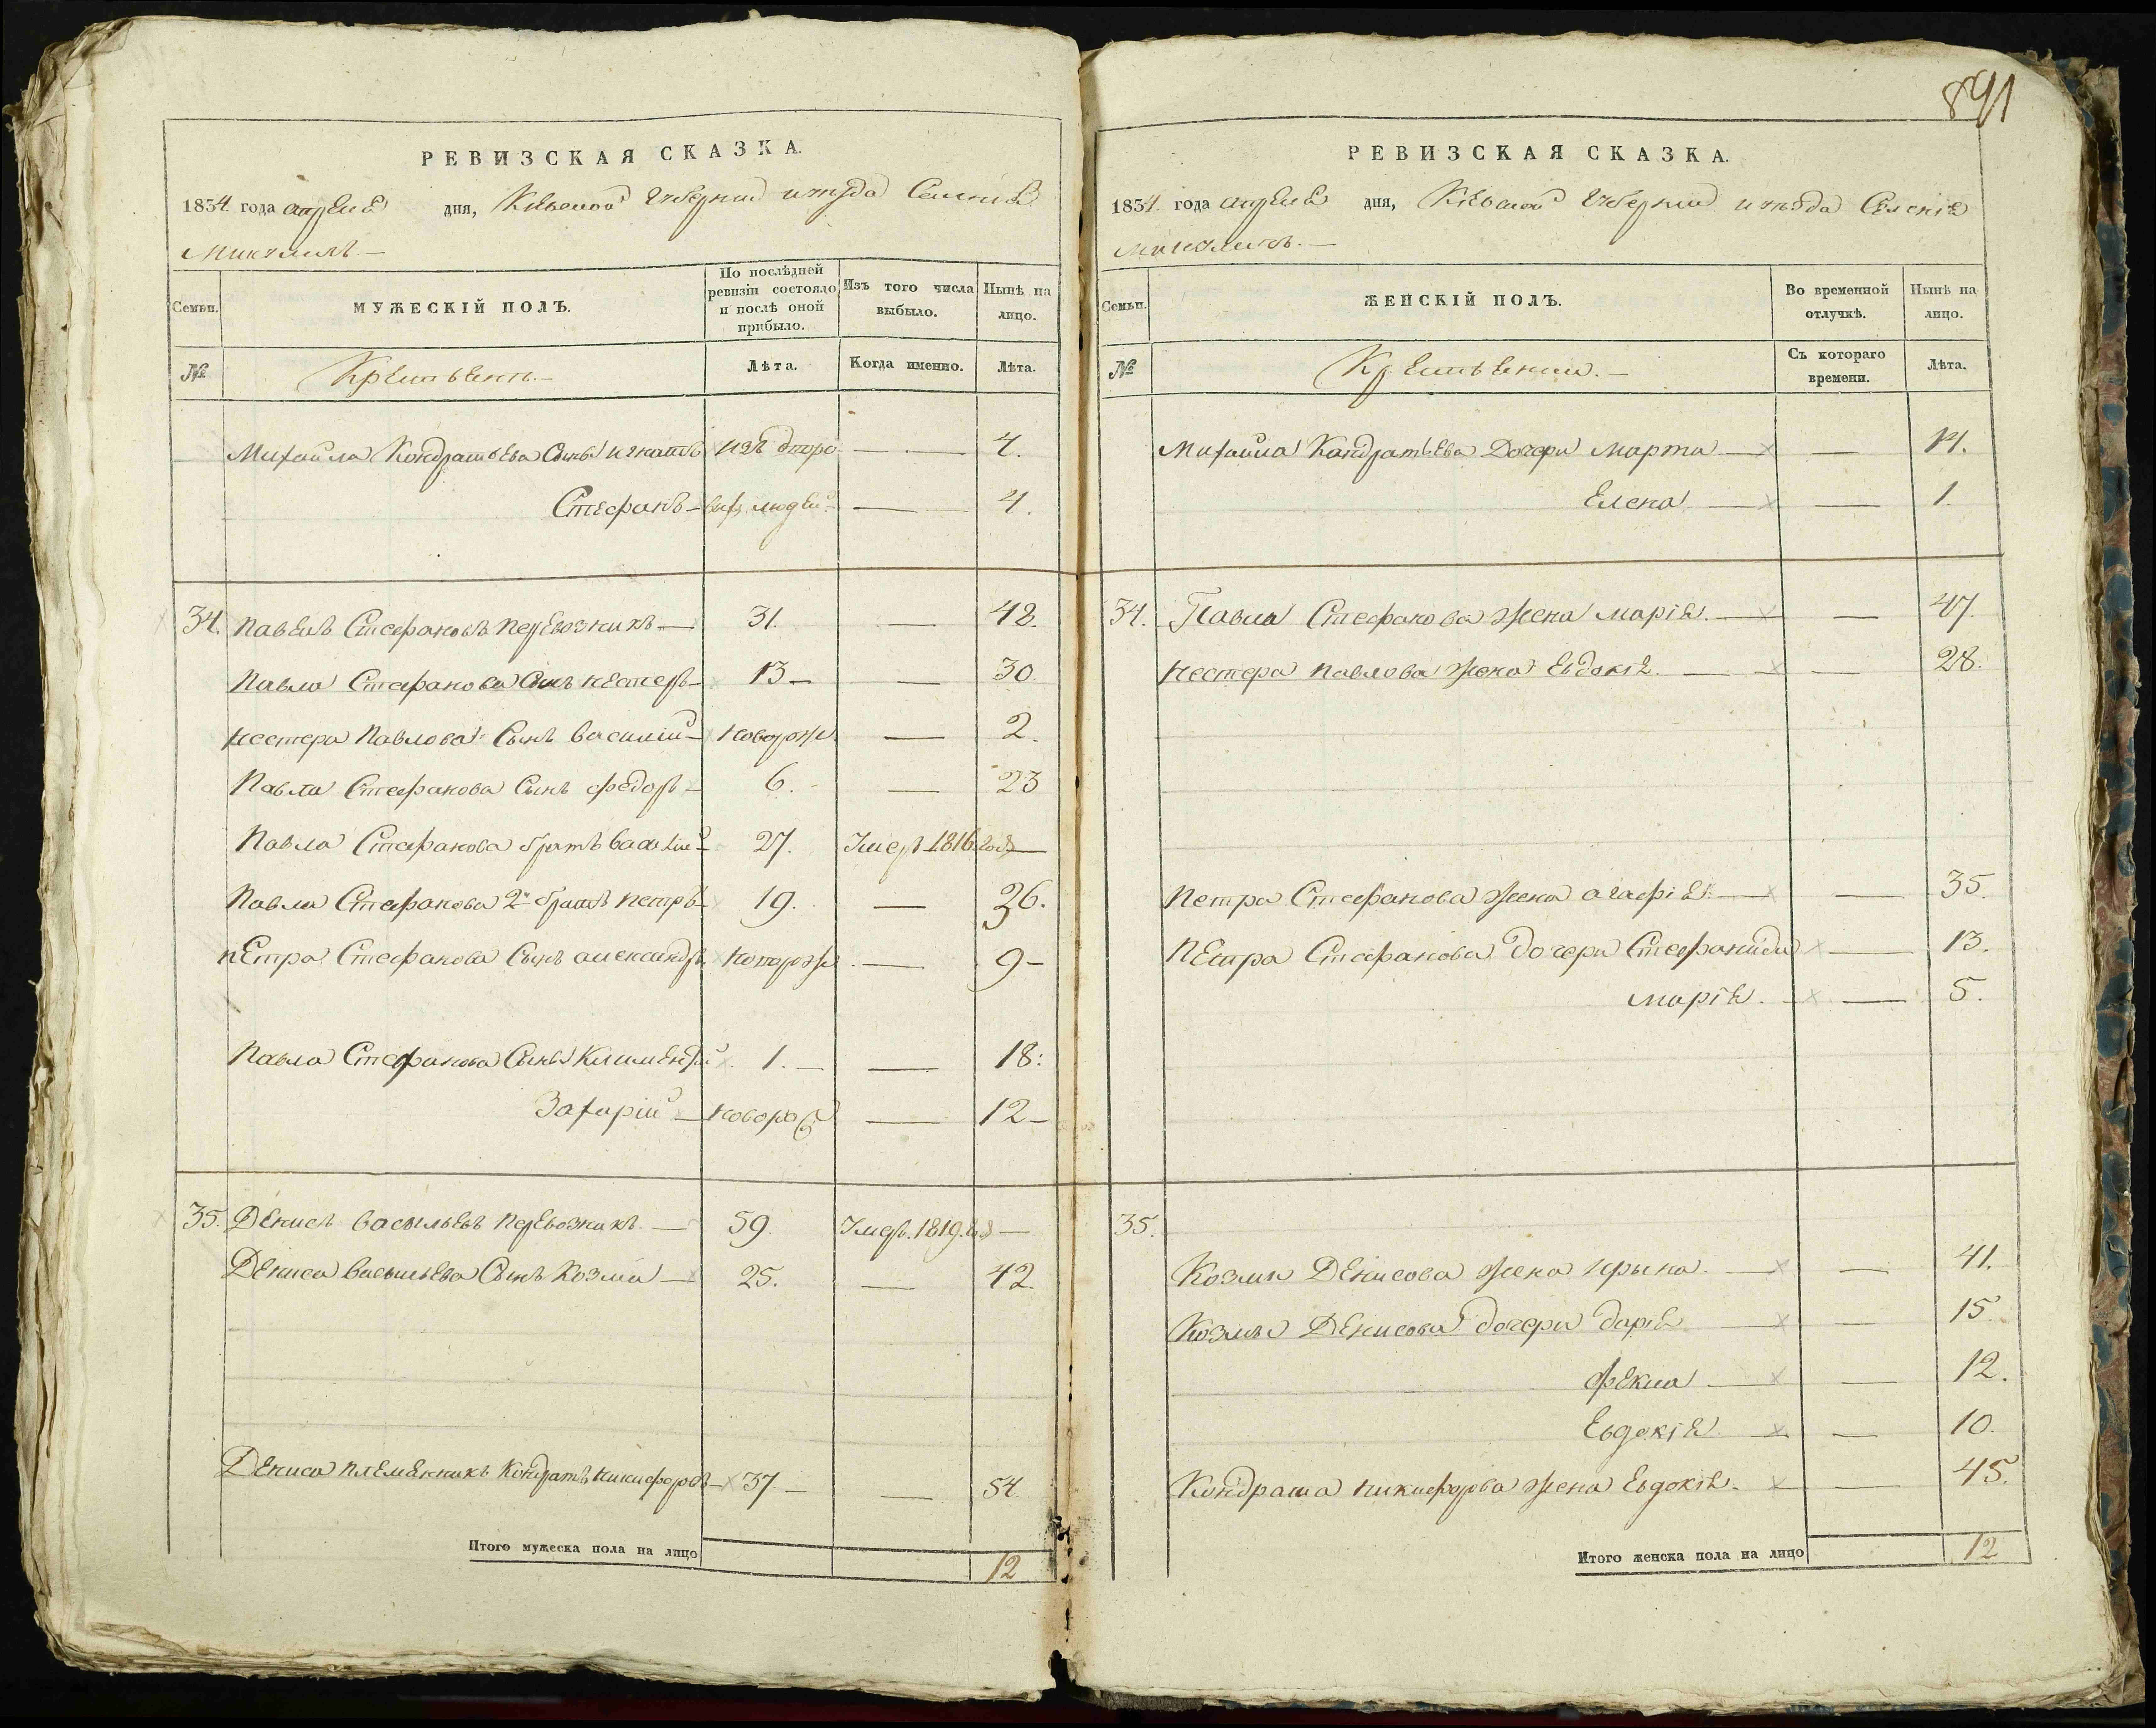 891
РЕВИЗСКАЯ СКАЗКА.
1834. года апреля дня, Киевской Губернии и уезда Селенія
МУЖЕСКІЙ ПОЛЪ.
Семьи.
По послѣдней ревизіи состояло и послѣ оной прибыло.
Изъ того числа выбыло.
Нынѣ на лицо.
№
Лѣта.
Когда именно.
Лѣта.
Михайла Кондратьева Сыны Игнатъ 4.
Стефанъ 4.
34. Павелъ Стефановъ Перевозникъ — 31. — 42.
Павла Стефанова Сынъ Нестеръ 13 — 30.
Нестера Павлова Сынъ Василий — новорож — 2.
Павла Стефанова Сынъ Федоръ — 6. — 23
Павла Стефанова братъ Василий 27. Умеръ 1816 год
Павла Стефанова 2й братъ Петръ 19. — 36.
Петра Стефанова Сынъ Александръ новорож — 9 —
Павла Стефанова Сыны Климентий 1. — 18.
Захарій — новорож — 12 —
35. Денисъ Васильевъ Перевозникъ. — 59. Умеръ 1819. год —
Дениса Васильева Сынъ Козма — 25. — 42.
Дениса племянникъ Кондратъ Никифоровъ — 37 — 54
Итого мужеска пола на лицо 12
РЕВИЗСКАЯ СКАЗКА.
1834. года апреля дня, Киевской Губернии и уезда Селенія
Семьи.
ЖЕНСКІЙ ПОЛЪ.
Во временной отлучкѣ.
Нынѣ на лицо.
№
Съ котораго времени.
Лѣта.
Михайла Кондратьева Дочери Марта — —
Елена — — 1.
34. Павла Стефанова жена Марія. — — 47.
Нестера Павлова жена Евдокія — — 28.
Петра Стефанова жена Агафія — — 35.
Петра Стефанова дочери Стефанида — 13.
Марія. — — 5.
35.
Козмы Денисова жена Ирына. — — 41.
Козмы Денисова дочери Дарія — — 15.
Фекла — — 12.
Евдокія — — 10.
Кондрата Никифорова жена Евдокія — — 45.
Итого женска пола на лицо 12